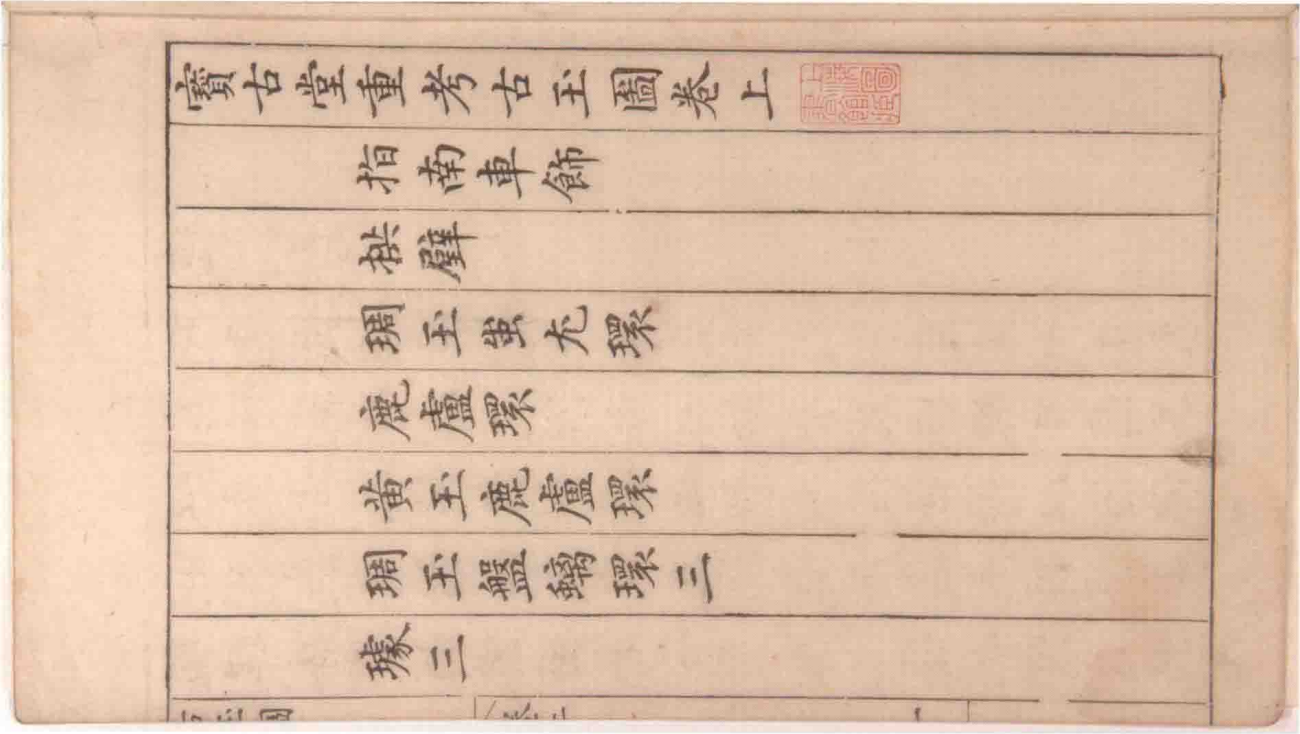 寶古堂重考古玉圖卷上
指南車飾
拱璧
琱玉蚩尤環
鹿盧環
黃玉鹿盧環
琱玉盤螭環三
璩三